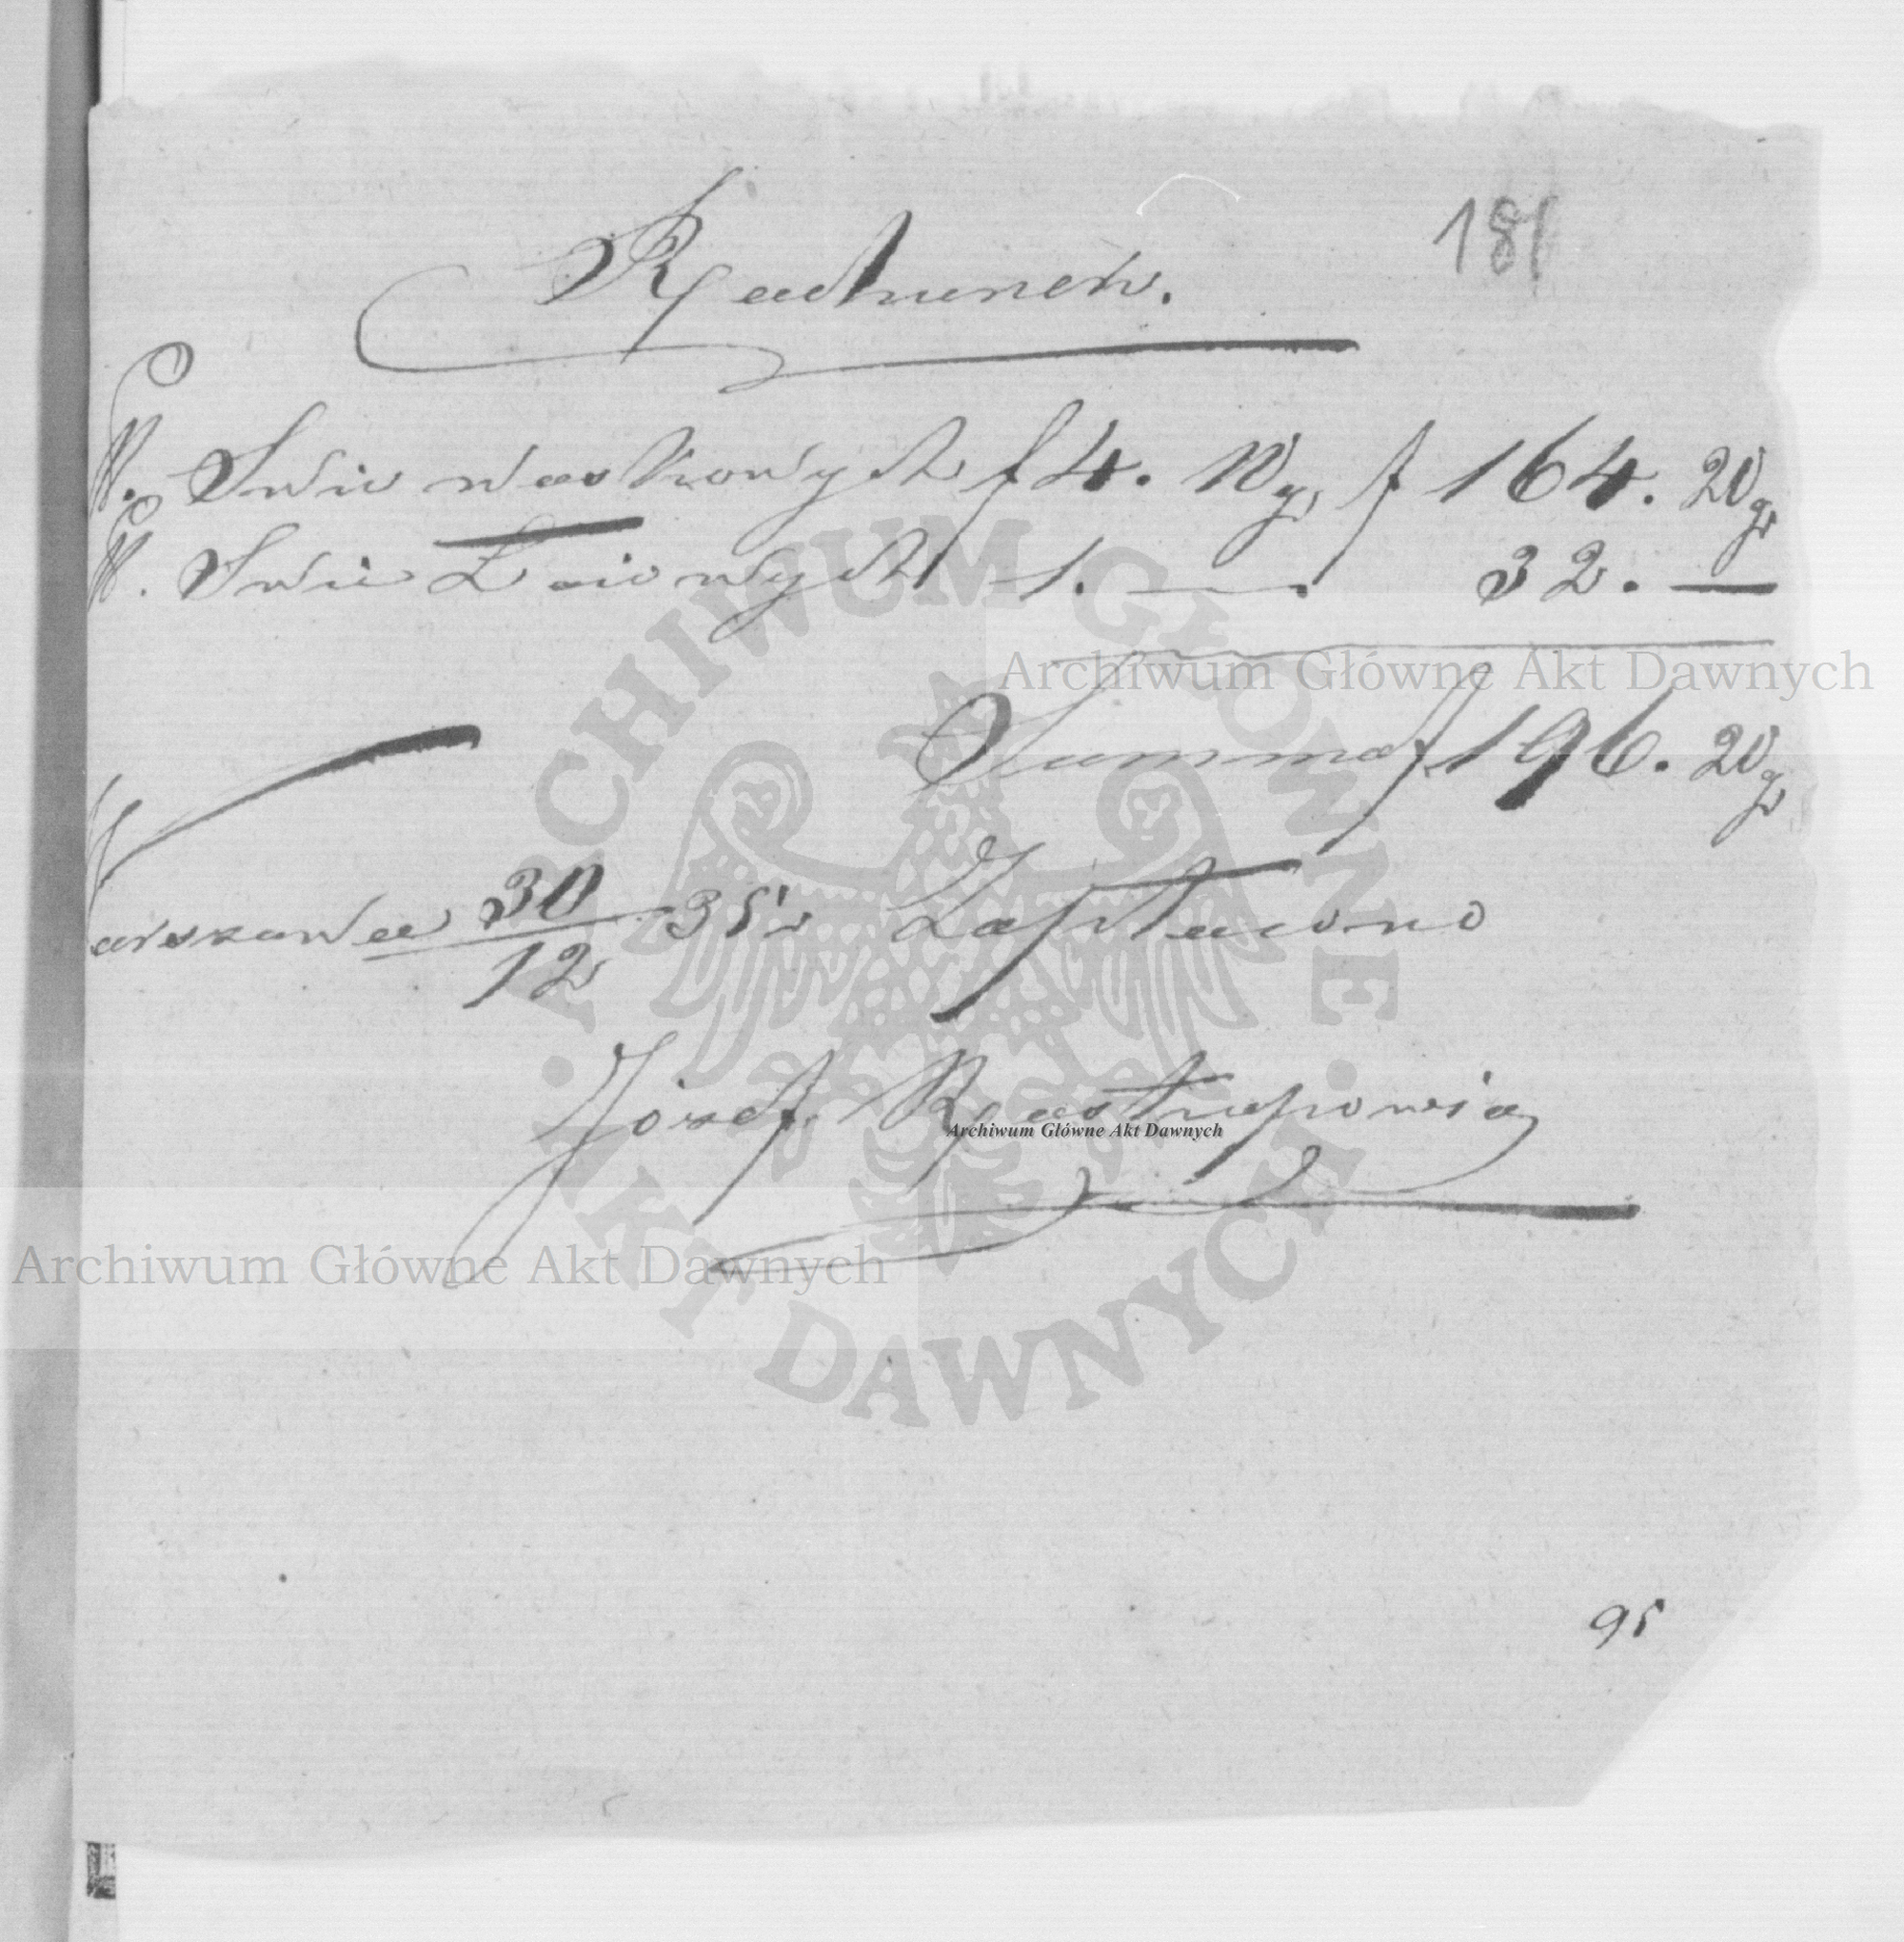 181
Rachunek.
Swic woskowych f 4. 10 gr f 164. 20 gr
Swic Loiowych 1. — . 32. —
Summa f 196. 20 gr
Warszawa 30/12 35 r Zapłacono
Józef Rostropowicz
95
Archiwum Główne Akt Dawnych
Archiwum Główne Akt Dawnych
Archiwum Główne Akt Dawnych
ARCHIWUM GŁÓWNE · AKT DAWNYCH ·